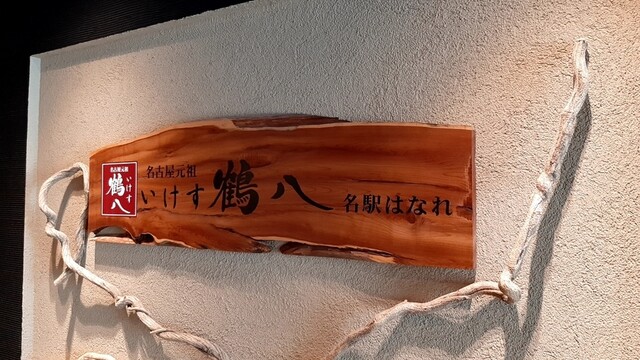 名古屋元祖
いけす
鶴八
名古屋元祖
いけす 鶴八 名駅はなれ